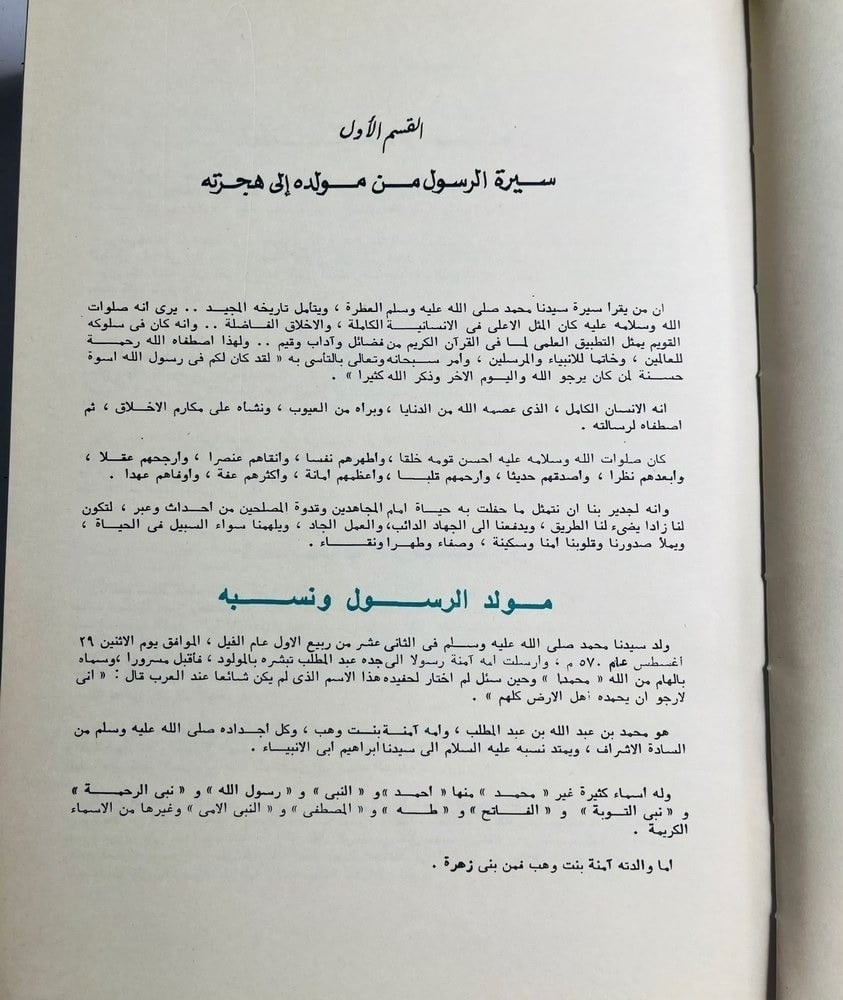 القسم الأول
سيرة الرسول من مولده إلى هجرته
ان من يقرا سيرة سيدنا محمد صلى الله عليه وسلم العطرة ، ويتأمل تاريخه المجيد .. يرى انه صلوات
الله وسلامه عليه كان المثل الاعلى فى الانسانية الكاملة ، والاخلاق الفاضلة .. وانه كان فى سلوكه
القويم يمثل التطبيق العلمى لما فى القرآن الكريم من فضائل وآداب وقيم .. ولهذا اصطفاه الله رحمة
للعالمين ، وخاتما للانبياء والمرسلين ، وأمر سبحانه وتعالى بالتأسى به « لقد كان لكم فى رسول الله اسوة
حسنة لمن كان يرجو الله واليوم الاخر وذكر الله كثيرا » .
انه الانسان الكامل ، الذى عصمه الله من الدنايا ، وبراه من العيوب ، ونشاه على مكارم الاخلاق ، ثم
اصطفاه لرسالته .
كان صلوات الله وسلامه عليه احسن قومه خلقا ، واطهرهم نفسا ، وانقاهم عنصرا ، وارجحهم عقلا ،
وابعدهم نظرا ، واصدقهم حديثا ، وارحمهم قلبا ، واعظمهم امانة ، واكثرهم عفة ، واوفاهم عهدا .
وانه لجدير بنا ان نتمثل ما حفلت به حياة امام المجاهدين وقدوة المصلحين من احداث وعبر ، لتكون
لنا زادا يضىء لنا الطريق ، ويدفعنا الى الجهاد الدائب، والعمل الجاد ، ويلهمنا سواء السبيل فى الحياة ،
ويملأ صدورنا وقلوبنا امنا وسكينة ، وصفاء وطهرا ونقاء .
مولد الرسول ونسبه
ولد سيدنا محمد صلى الله عليه وسلم فى الثانى عشر من ربيع الاول عام الفيل ، الموافق يوم الاثنين ٢٩
أغسطس عام ٥٧٠ م ، وارسلت امه آمنة رسولا الى جده عبد المطلب تبشره بالمولود ، فأقبل مسرورا ، وسماه
بالهام من الله « محمدا » وحين سئل لم اختار لحفيده هذا الاسم الذى لم يكن شائعا عند العرب قال : « انى
لارجو ان يحمده أهل الارض كلهم » .
هو محمد بن عبد الله بن عبد المطلب ، وامه آمنة بنت وهب ، وكل اجداده صلى الله عليه وسلم من
السادة الاشراف ، ويمتد نسبه عليه السلام الى سيدنا ابراهيم ابى الانبياء .
وله اسماء كثيرة غير « محمد » منها « احمد » و « النبى » و « رسول الله » و « نبى الرحمة »
و « نبى التوبة » و « الفاتح » و « طه » و « المصطفى » و « النبى الامى » وغيرها من الاسماء
الكريمة .
اما والدته آمنة بنت وهب فمن بنى زهرة .